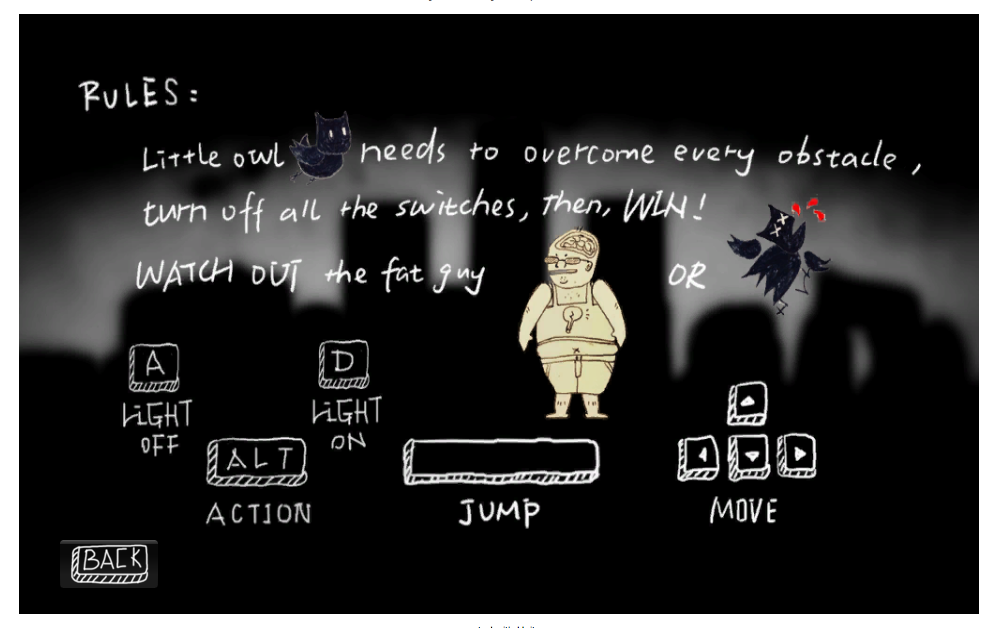 RULES:
Little owl needs to overcome every obstacle,
turn off all the switches, Then, WIN!
WATCH OUT the fat guy OR
A D
LIGHT OFF LIGHT ON
ALT
ACTION JUMP MOVE
BACK